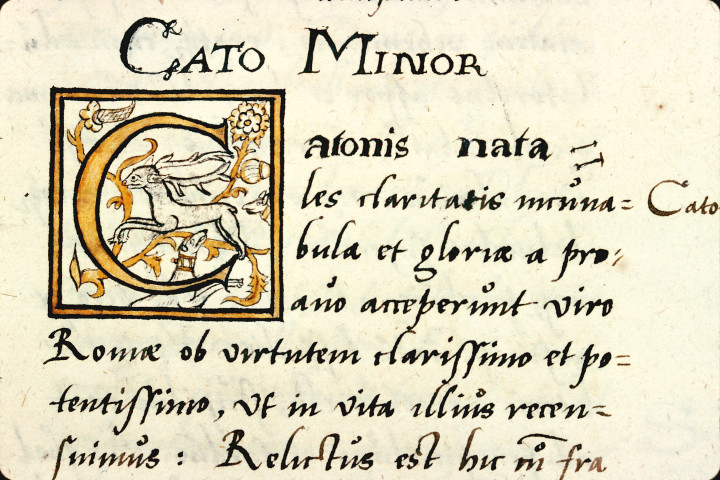 CATO MINOR
Catonis nata=
les claritatis incuna= Cato
bula et gloriæ a pro,
auo acceperunt viro
Romæ ob virtutem clarissimo et po=
tentissimo, vt in vita illius recen=
suimus: Relictus est hic
fra